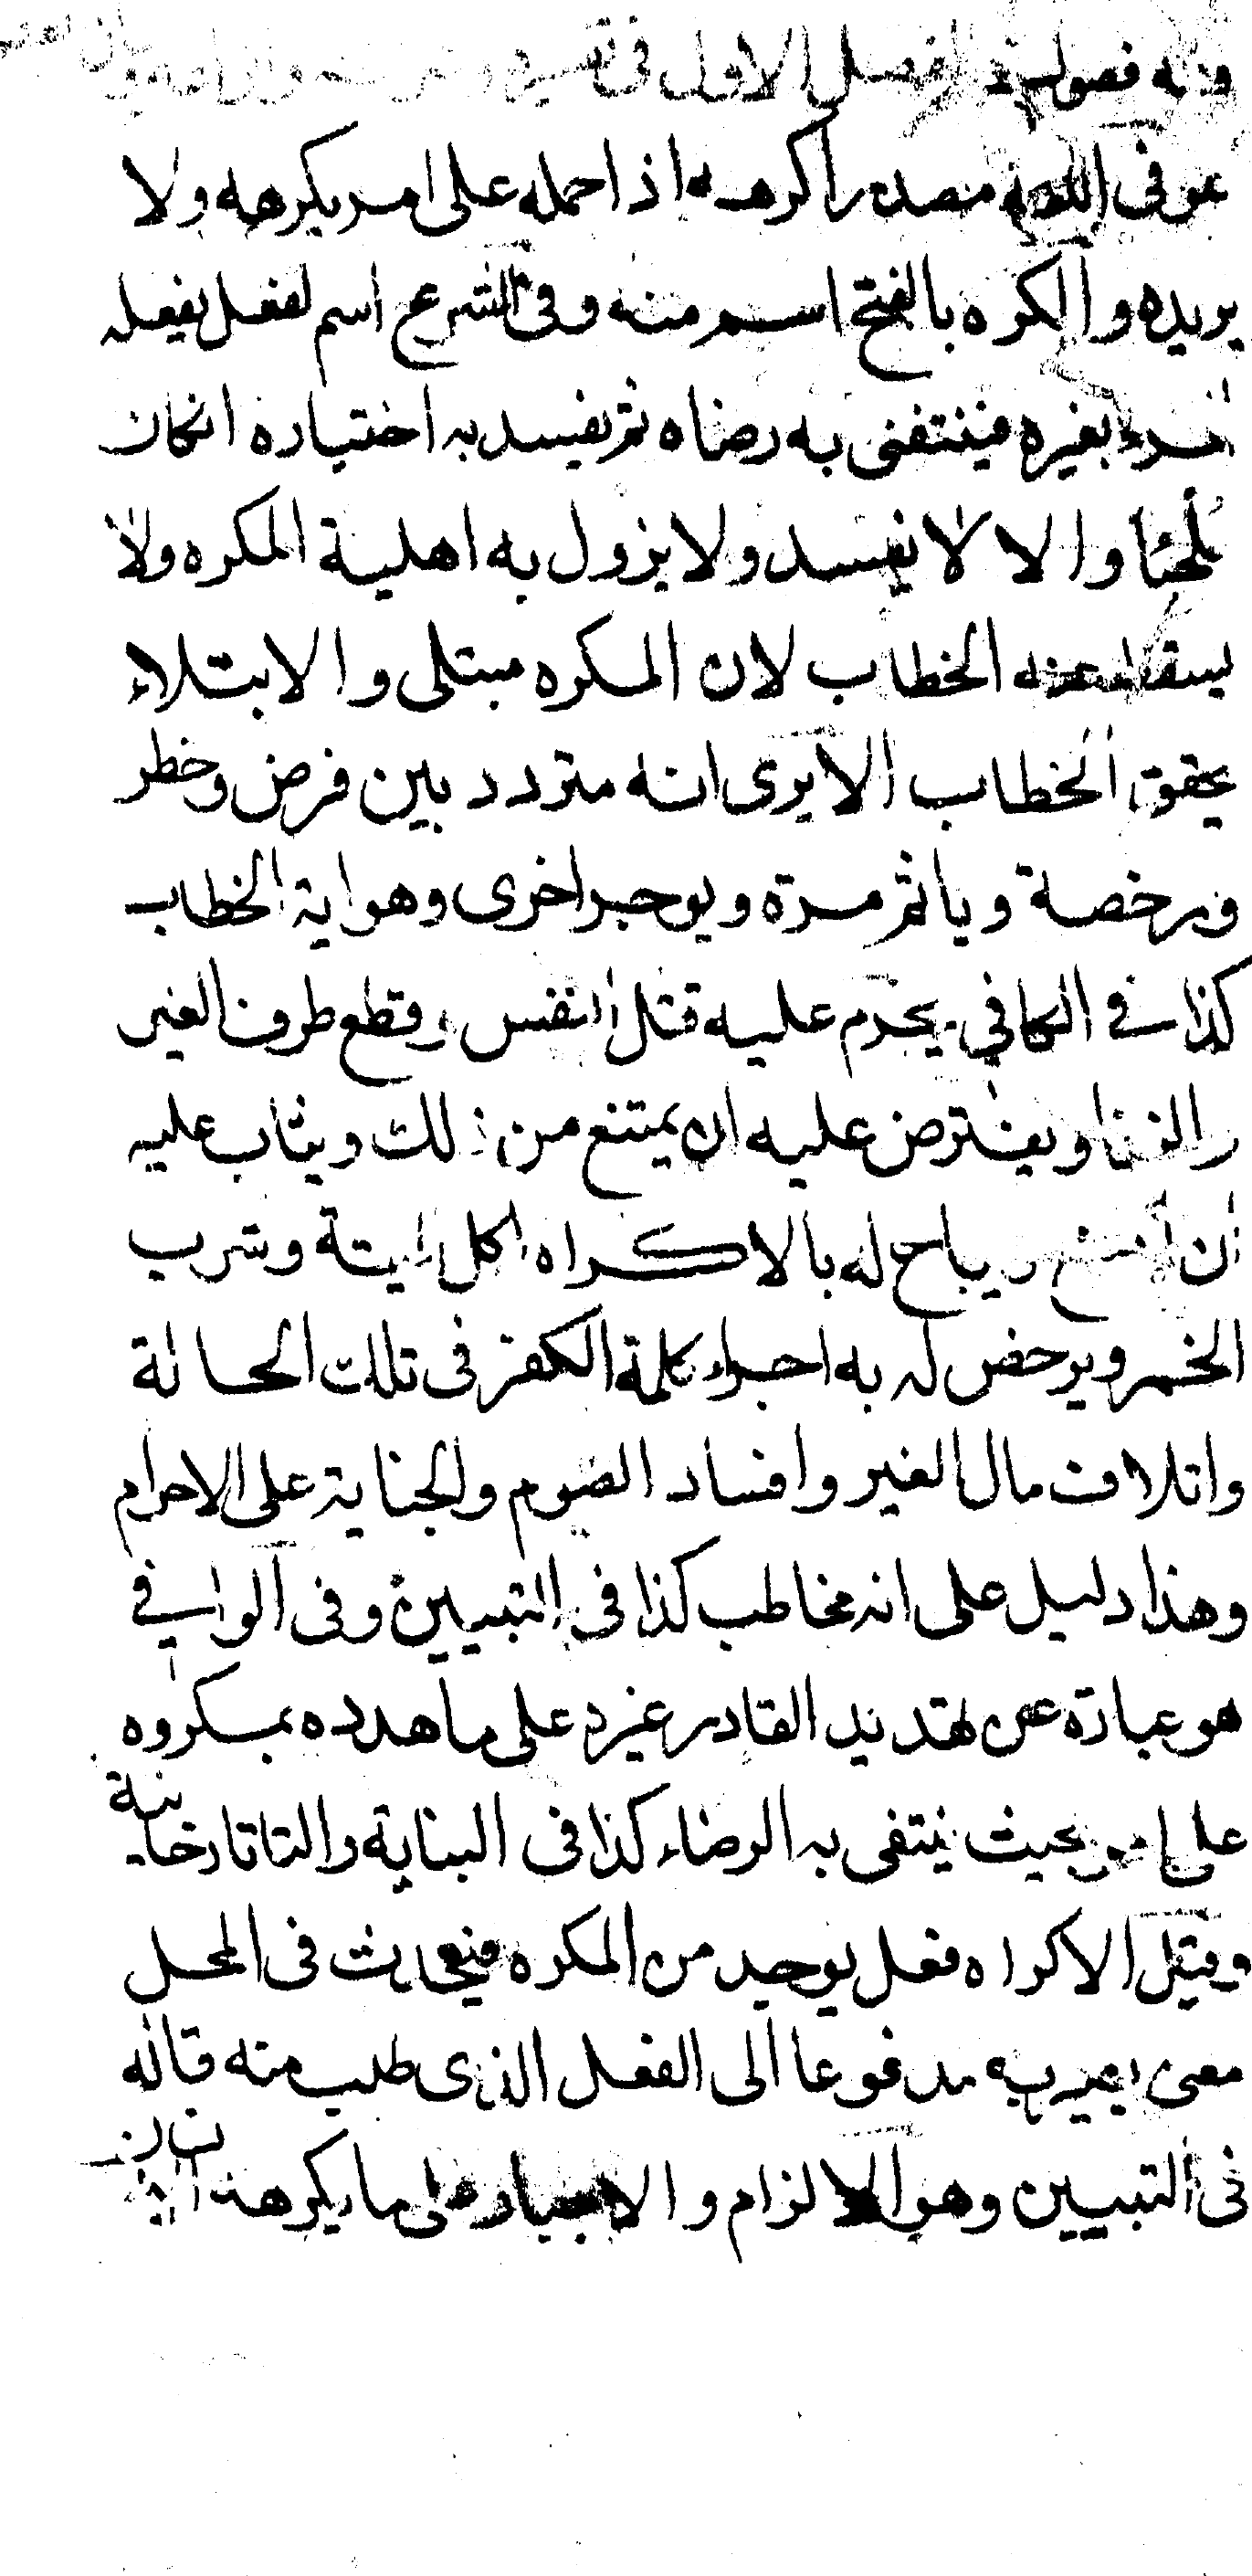 وفيه فصول الفصل الاول في تفسيره
هو في اللغة مصدر اكرهه اذا حمله على امر يكرهه ولا
يريده والكره بالفتح اسم منه وفي الشرع اسم لفعل يفعله
المرء بغيره فينتفى به رضاه ثم يفسد به اختياره انكان
ملجئا والا لا يفسد ولا يزول به اهلية المكره ولا
يسقط عنه الخطاب لان المكره مبتلى والابتلاء
يحقق الخطاب الا يرى انه متردد بين فرض وخطر
ورخصة وياثم مرة ويوجر اخرى وهو اية الخطاب
كذا في الكافي يحرم عليه قتل النفس وقطع طرف الغير
والزنا ويفترض عليه ان يمتنع من ذلك ويثاب عليه
ان امتنع ويباح له بالاكراه اكل الميتة وشرب
الخمر ويرخص له به اجراء كلمة الكفر فى تلك الحالة
واتلاف مال الغير وافساد الصوم والجناية على الاحرام
وهذا دليل على انه مخاطب كذا فى التبيين وفى الوافي
هو عبارة عن تهديد القادر غيره على ما هدده بمكروه
على امر بحيث ينتفى به الرضاء كذا فى البناية والتاتارخانية
وقيل الاكراه فعل يوجد من المكره فيحدث فى المحل
معنى يصير به مدفوعا الى الفعل الذى طلب منه قاله
فى التبيين وهو الالزام والاجبار على ما يكرهه